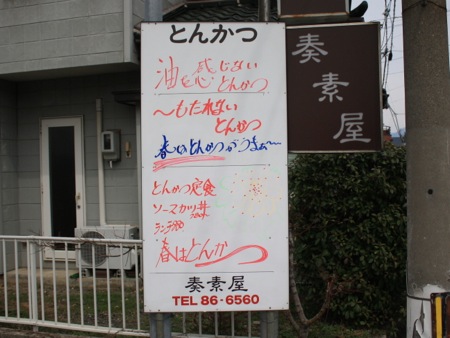 とんかつ
油を感じない
とんかつ
〜もたれない
とんかつ
春いとんかつがうまぁ〜
とんかつ定食
ソースカツ丼
ランチ
春はとんかつ
奏素屋
TEL 86-6560
奏素屋